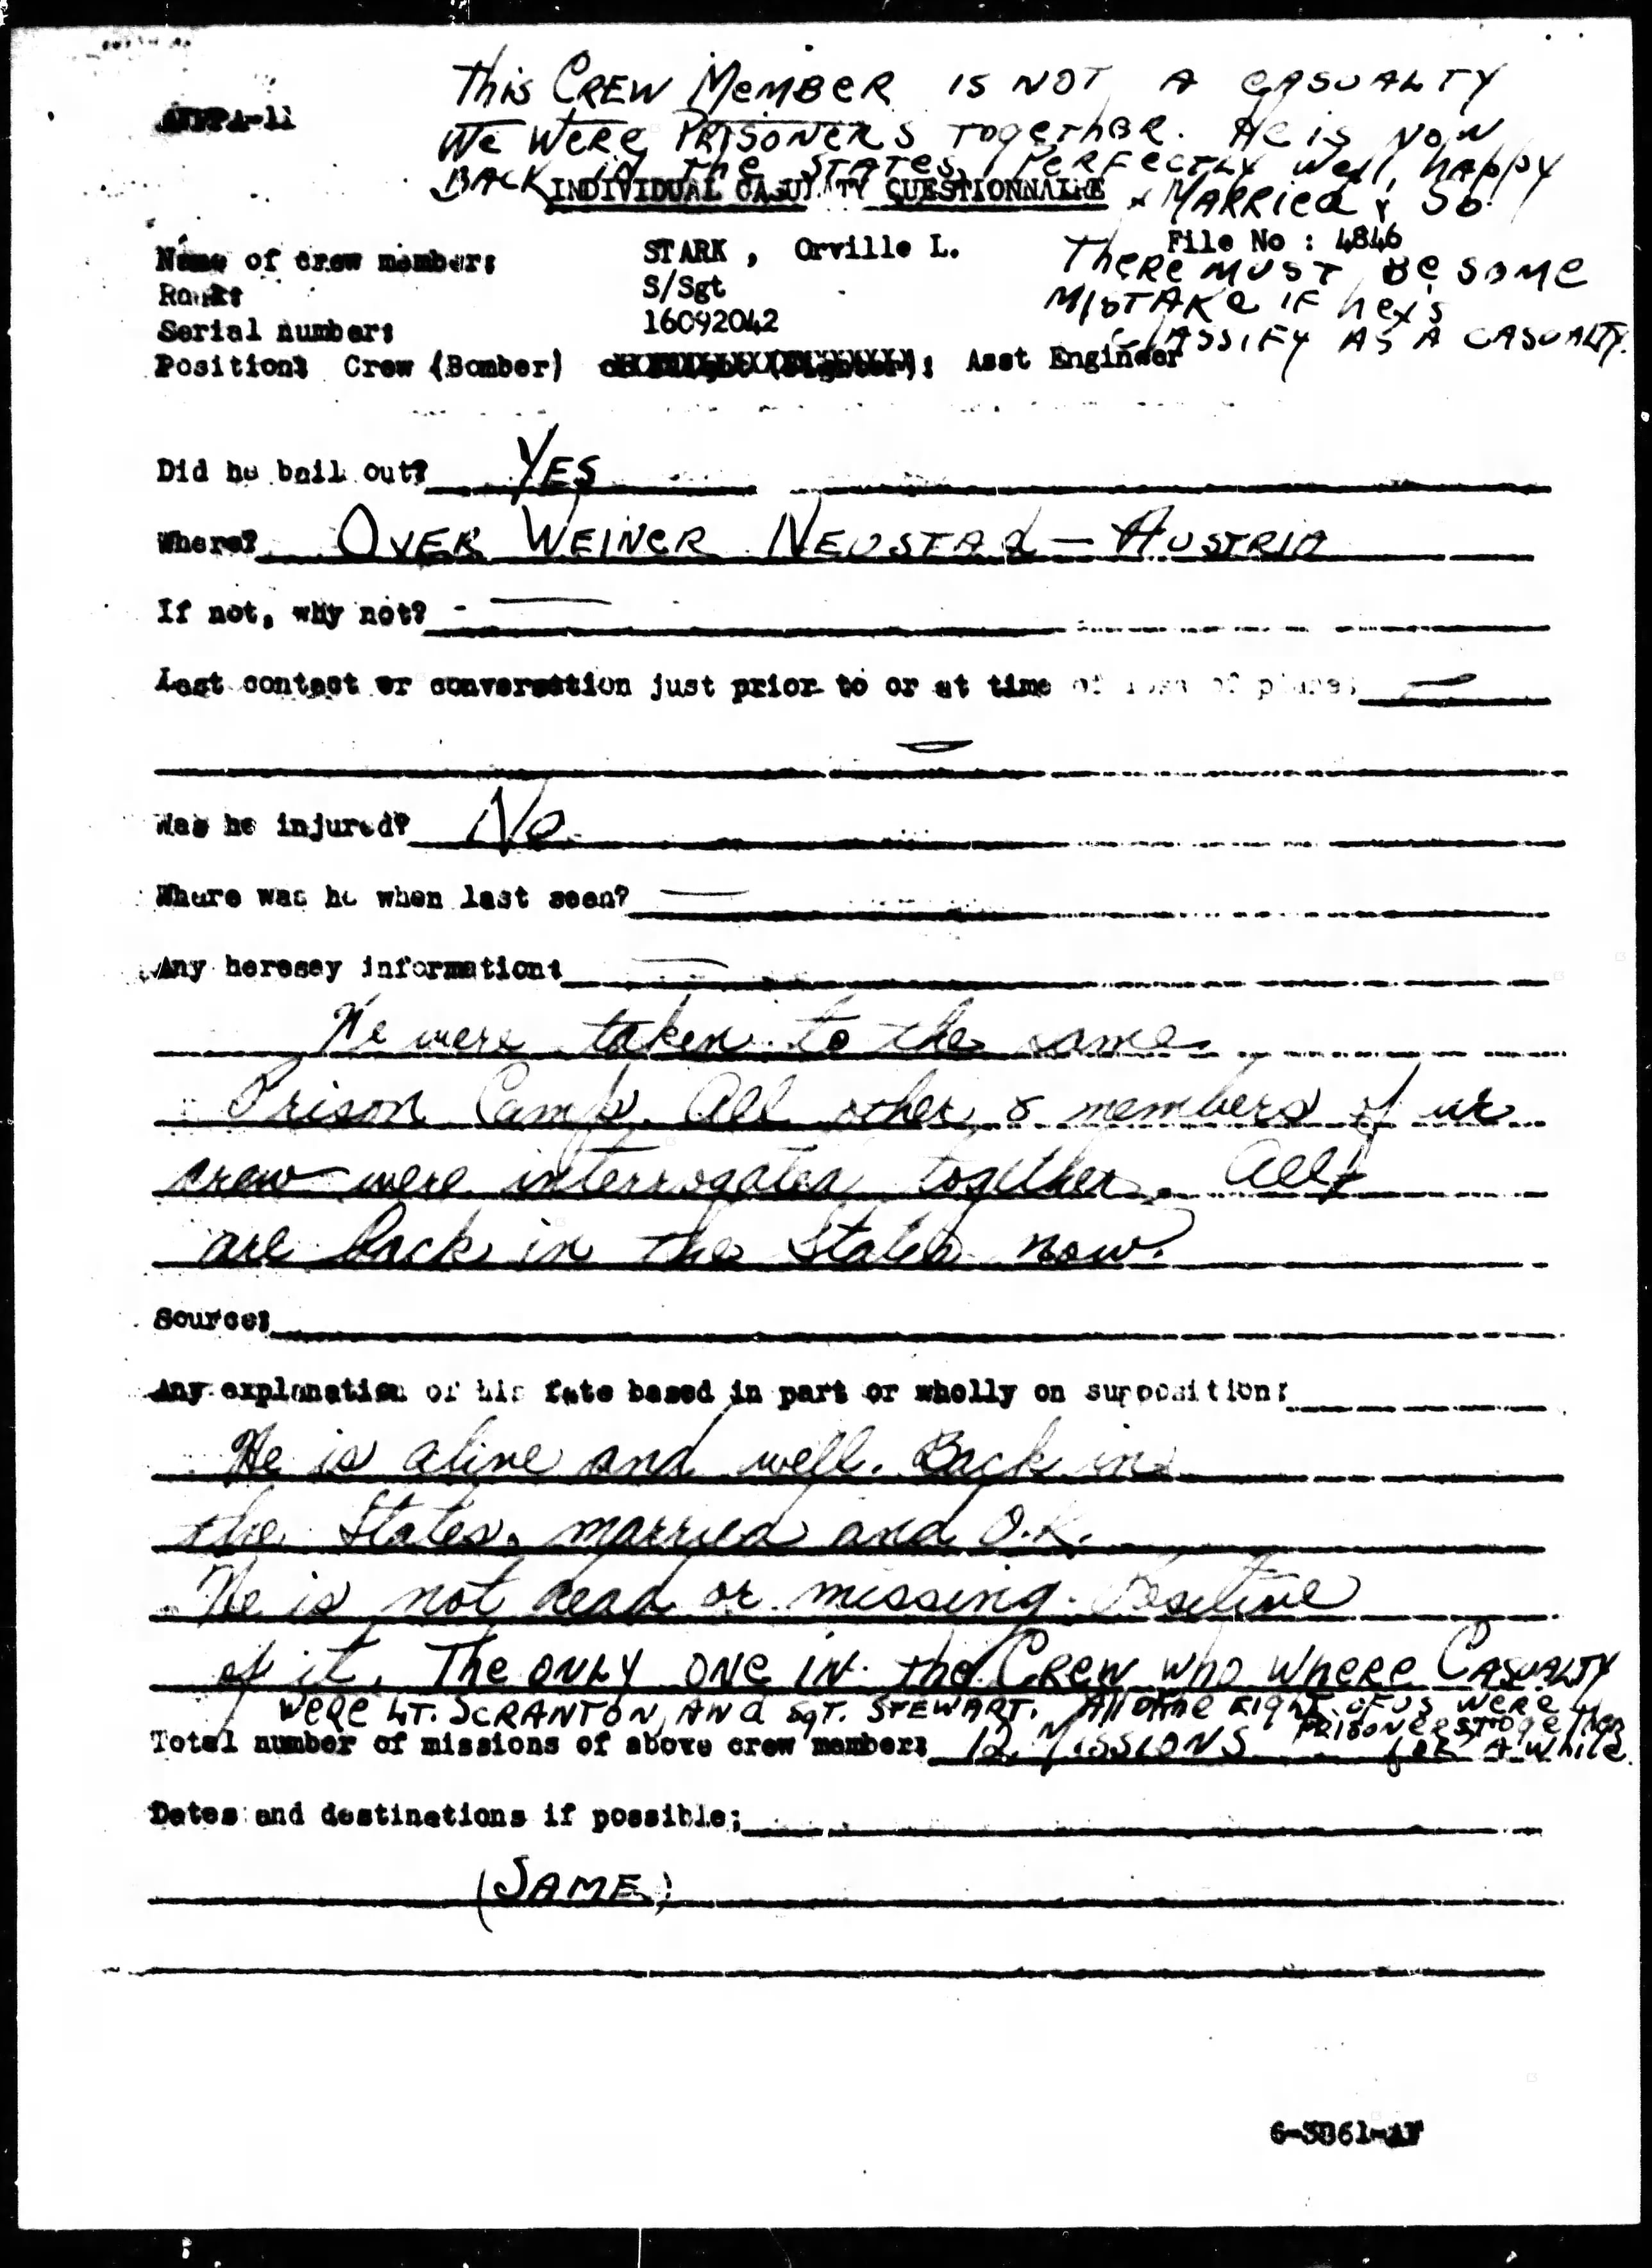 This CREW MEMBER IS NOT A CASUALTY
We WERE PRISONERS TogeTHER. He is NOW
BACK IN THE STATES, PERFECTLY Well, happy
INDIVIDUAL CASUALTY QUESTIONNAIRE & MARRIED, So
Name of crew member: STARK , Orville L. File No : 4846
THERE MUST BE SOME
Rank: S/Sgt MISTAKE IF he is
Serial number: 16092042 CLASSIFY AS A CASUALTY.
Position: Crew (Bomber) Asst Engineer
Did he bail out? YES
Where? OVER WEINER NEUSTAD - AUSTRIA
If not, why not? -
Last contact or conversation just prior to or at time of loss of plane:
Was he injured? No
Where was he when last seen?
Any heresey information:
We were taken to the same
Prison Camp. All other 8 members of ur
crew were interrogated together. All
are back in the States now.
Source:
Any explanation of his fate based in part or wholly on supposition:
He is alive and well. Back in
the States, married and O.K.
He is not dead or missing. Positive
of it. The ONLY ONE IN the CREW who where CASUALTY
WeRe LT. SCRANTON, AND SgT. STEWART. All othe EIGHT OF US WERE
PRISONERS TOgeTher
Total number of missions of above crew member: 12 MISSIONS for A while.
Dates and destinations if possible;
(SAME)
6-3861-AF